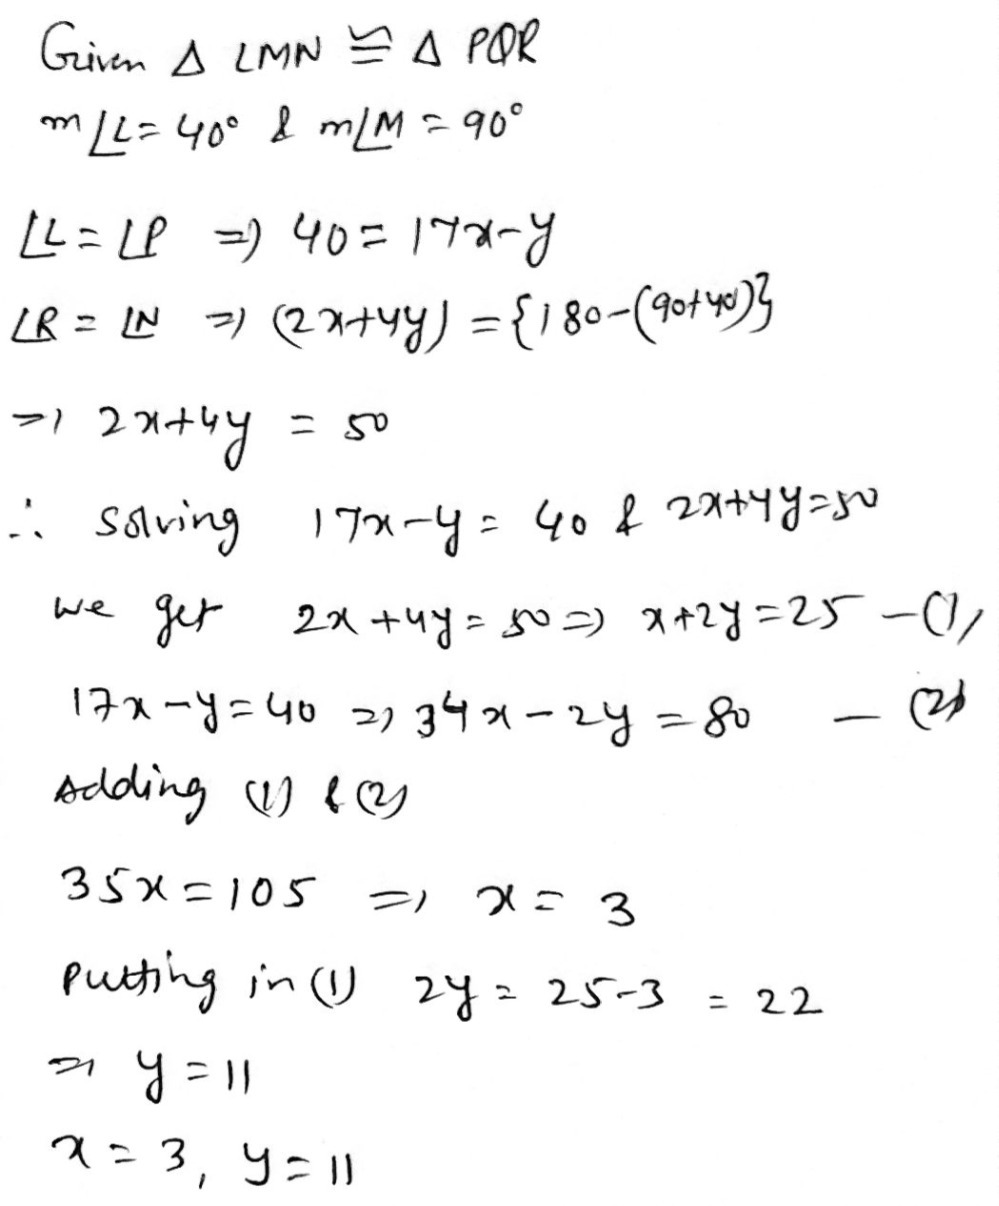 Given Δ LMN ≅ Δ PQR
m∠L = 40° & m∠M = 90°
∠L = ∠P ⇒ 40 = 17x-y
∠R = ∠N ⇒ (2x+4y) = {180-(90+40)}
⇒ 2x+4y = 50
∴ solving 17x-y = 40 & 2x+4y=50
we get 2x+4y = 50 ⇒ x+2y=25 -(1)
17x-y=40 ⇒ 34x-2y = 80 - (2)
Adding (1) & (2)
35x = 105 ⇒ x = 3
putting in (1) 2y = 25-3 = 22
⇒ y = 11
x = 3, y = 11